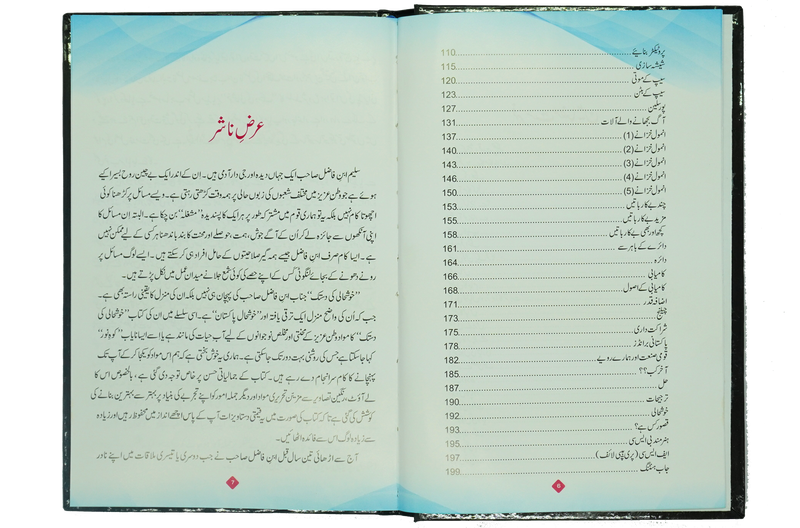 پروڈیکٹر بنائیے 110
شیشہ سازی 115
سیپ کے موتی 120
سیپ کے بٹن 123
پورسلین 127
آگ بجھانے والے آلات 131
انمول خزانے (1) 137
انمول خزانے (2) 140
انمول خزانے (3) 143
انمول خزانے (4) 146
انمول خزانے (5) 150
چند بے کار باتیں 153
مزید بے کار باتیں 155
کچھ اور بھی بے کار باتیں 158
دائرے کے باہر سے 161
دائرہ 164
کامیابی 166
کامیابی کے اصول 168
اضافہ قدر 171
چیلنج 173
شراکت داری 175
پاکستانی برانڈز 178
قومی صنعت اور ہمارے رویے 182
آخر کب؟؟ 185
حل 187
ترجیحات 190
خوشحالی 192
قصور کس ہے؟ 193
ہنر مند بی ایس سی 195
ایف ایس سی (پری پیچی لائف) 197
جاب ہنٹنگ 199
6
عرضِ ناشر
سلیم ابنِ فاضل صاحب ایک جہاں دیدہ اور جی دار آدمی ہیں۔ اِن کے اندر ایک بے چین روح بسیرا کیے
ہوئے ہے جو وطنِ عزیز میں مختلف شعبوں کی زبوں حالی پر ہمہ وقت کڑھتی رہتی ہے۔ ویسے مسائل پر کڑھنا کوئی
اچھوتا کام نہیں بلکہ یہ تو ہماری قوم میں مشترکہ طور پر ہر ایک کا پسندیدہ ”مشغلہ“ بن چکا ہے۔ البتہ اِن مسائل کا
اپنی آنکھوں سے جائزہ لے کر اُن کے آگے جوش، ہمت، حوصلے اور محنت کا بند باندھنا ہر کسی کے لیے ممکن نہیں
ہے۔ ایسا کام صرف ابنِ فاضل جیسے ہمہ گیر صلاحیتوں کے حامل افراد ہی کر سکتے ہیں۔ ایسے لوگ مسائل پر
رونے دھونے کے بجائے لنگوٹی کس کے اپنے حصے کی کوئی شمع جلانے میدانِ عمل میں نکل پڑتے ہیں۔
”خوشحالی کی دستک“ جناب ابنِ فاضل صاحب کی پہچان ہی نہیں بلکہ ان کی منزل کا یقینی راستہ بھی ہے۔
جب کہ اُن کی واضح منزل ایک ترقی یافتہ اور ”خوشحال پاکستان“ ہے۔ اسی سلسلے میں ان کی کتاب ”خوشحالی کی
دستک“ کا مواد وطنِ عزیز کے محنتی اور مخلص نوجوانوں کے لیے آبِ حیات کی مانند ہے یا اسے ایسا نایاب ”کوہِ نور“
کہا جا سکتا ہے جس کی روشنی بہت دور تک جا سکتی ہے۔ ہماری یہ خوش بختی ہے کہ ہم اس مواد کو یکجا کر کے آپ تک
پہنچانے کا کام سر انجام دے رہے ہیں۔ کتاب کے جمالیاتی حسن پر خاص توجہ دی گئی ہے، بالخصوص اس کا
لے آؤٹ، رنگین تصاویر سے مزین تحریری مواد اور دیگر جملہ امور کو اپنے تجربے کی بنیاد پر بہتر سے بہترین بنانے کی
کوشش کی گئی ہے تاکہ کتاب کی صورت میں یہ قیمتی دستاویزات آپ کے پاس اچھے انداز میں محفوظ رہیں اور زیادہ
سے زیادہ لوگ اس سے فائدہ اٹھائیں۔
آج سے اڑھائی تین سال قبل ابنِ فاضل صاحب نے جب دوسری یا تیسری ملاقات میں اپنے نادر
7